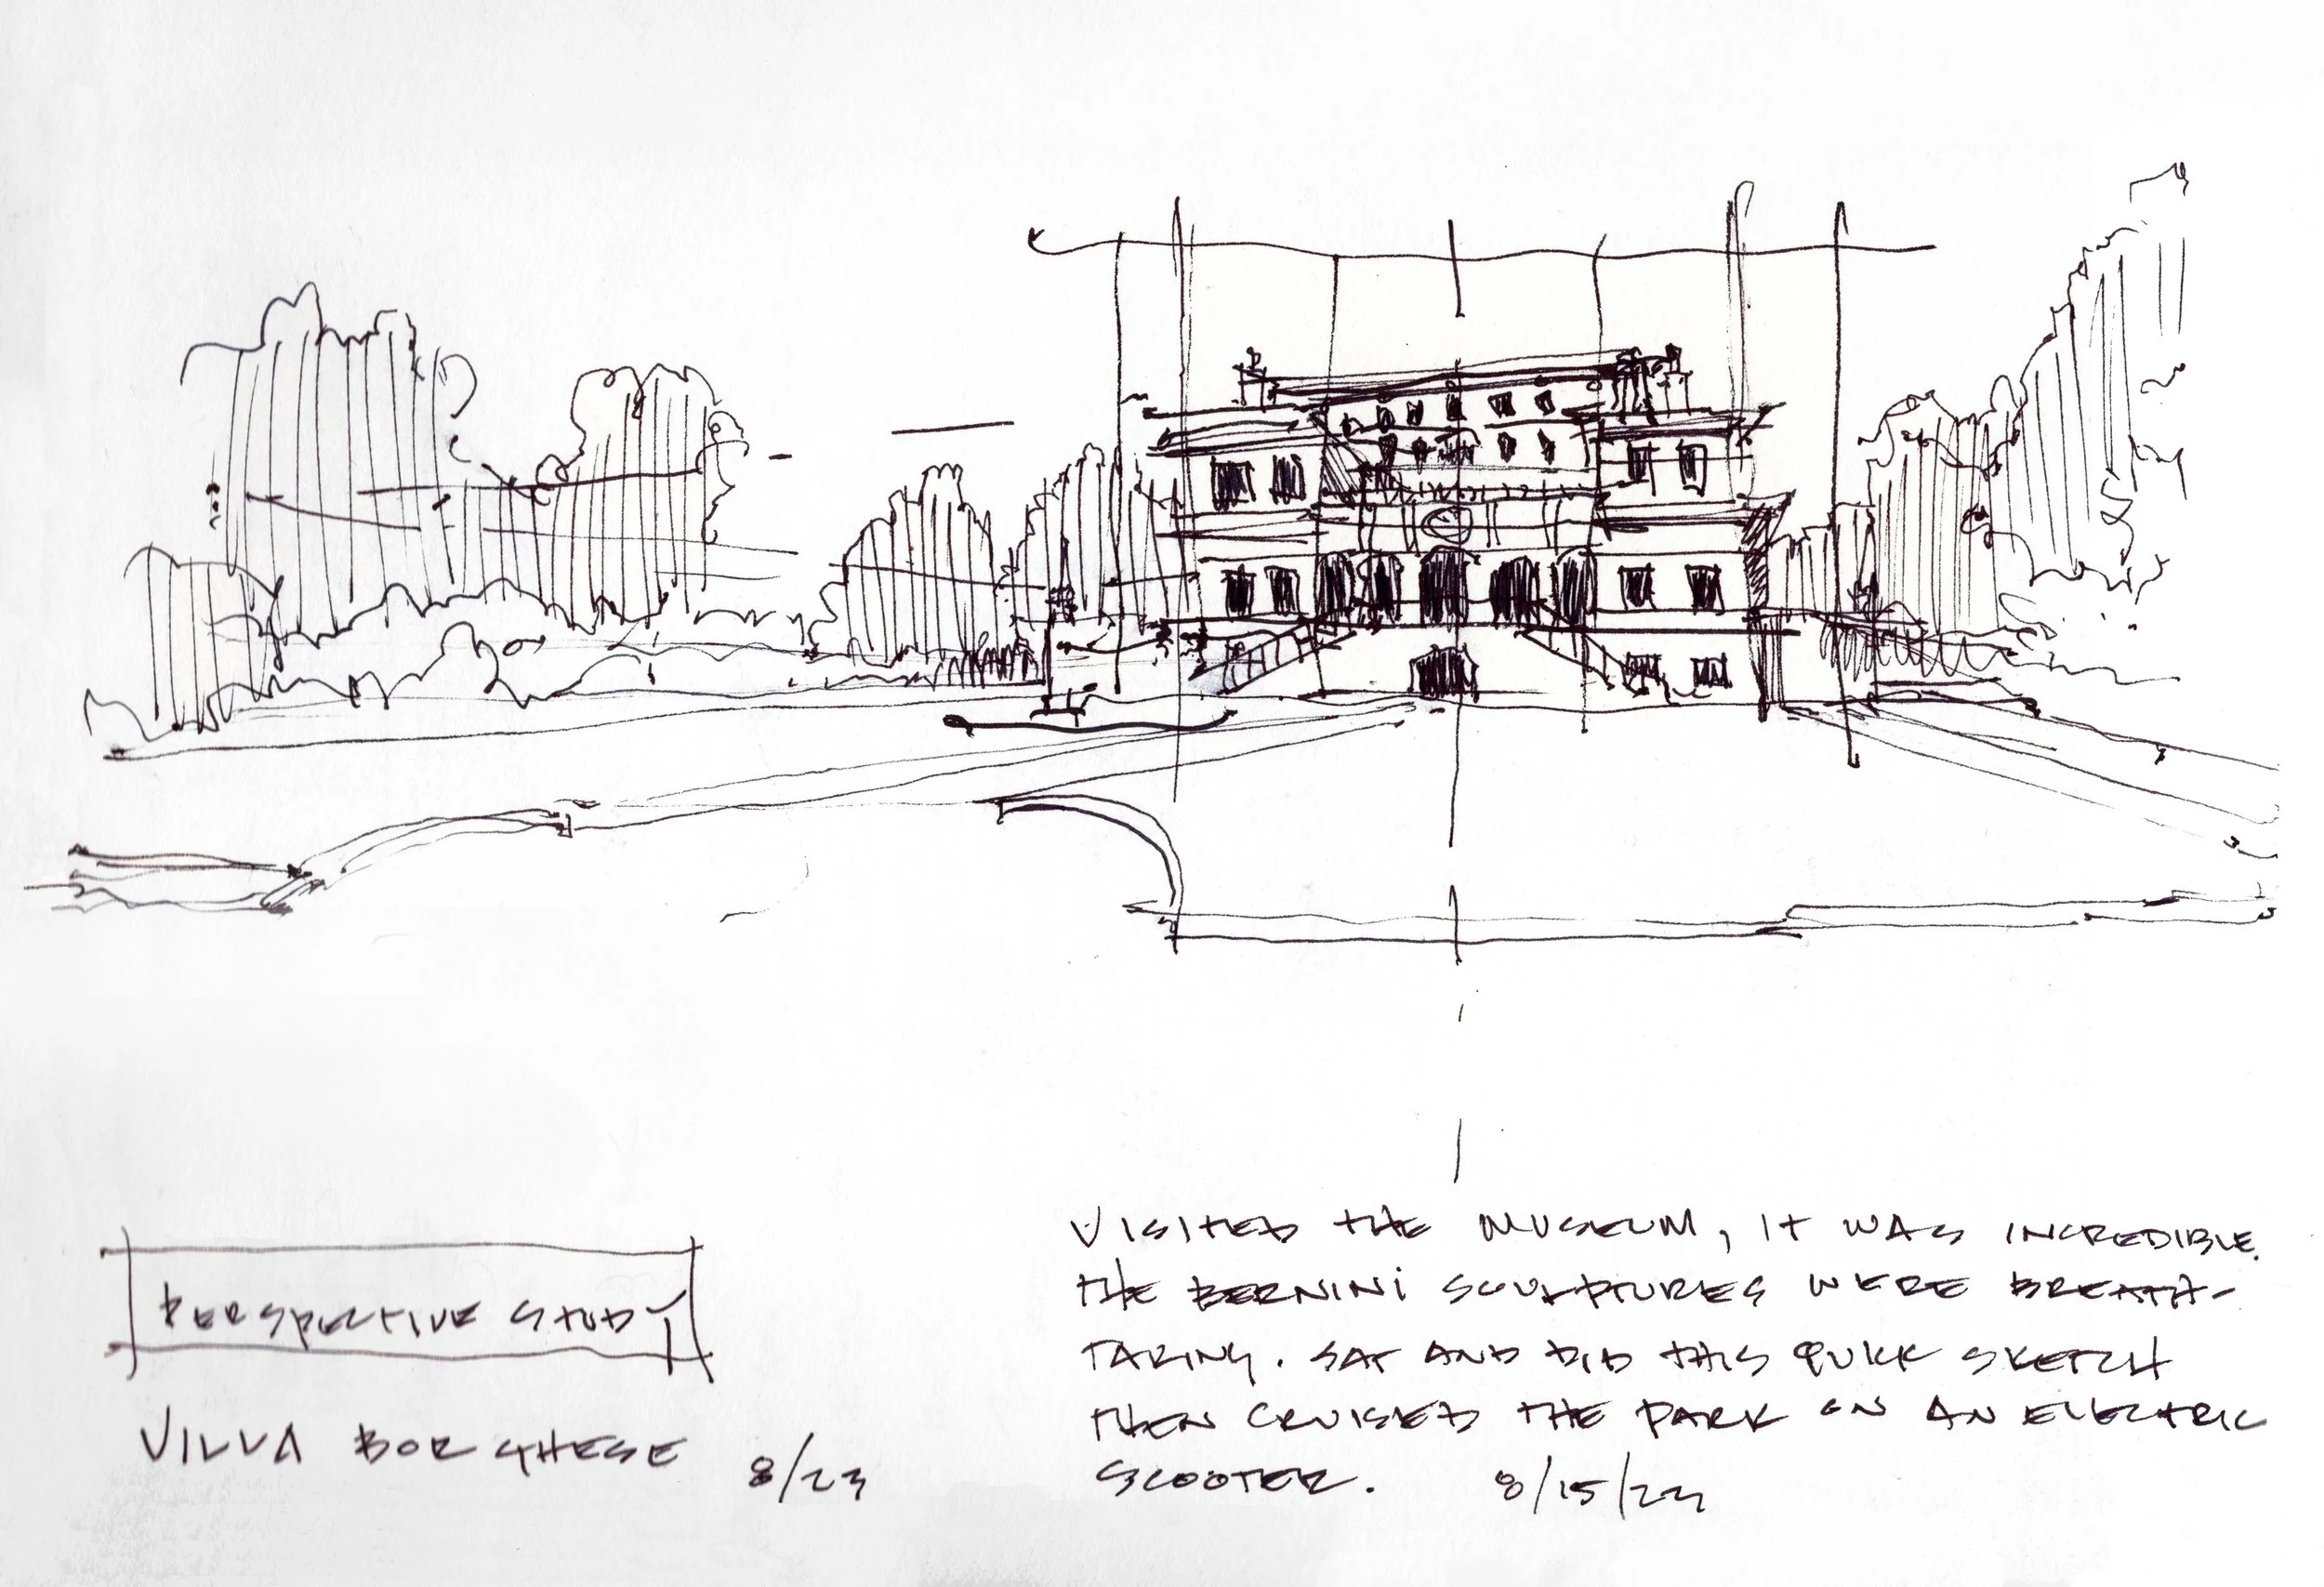 PERSPECTIVE STUDY
VILLA BORGHESE 8/23
VISITED THE MUSEUM, IT WAS INCREDIBLE.
THE BERNINI SCULPTURES WERE BREATH-
TAKING. SAT AND DID THIS QUICK SKETCH
THEN CRUISED THE PARK ON AN ELECTRIC
SCOOTER. 8/15/23